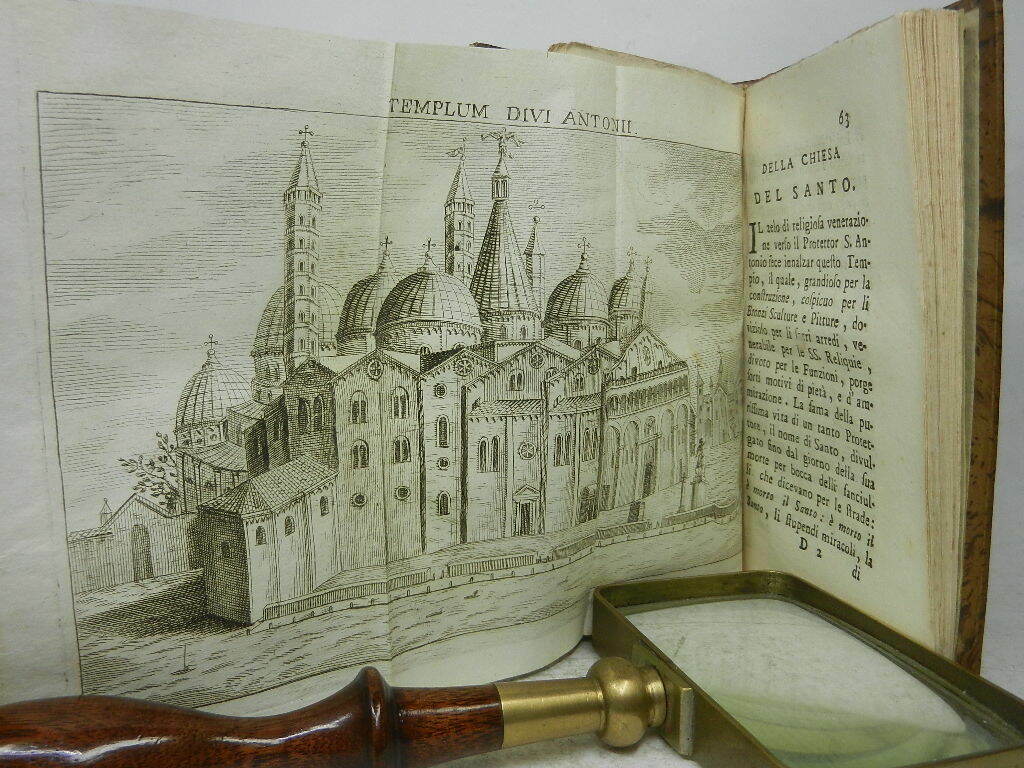 TEMPLUM DIVI ANTONII.
63
DELLA CHIESA
DEL SANTO.
IL zelo di religioſa venerazio-
ne verſo il Protettor S. An-
tonio fece innalzar queſto Tem-
pio, il quale, grandioſo per la
coſtruzione, coſpicuo per li
Bronzi Sculture e Pitture, do-
vizioſo per li ſacri arredi, ve-
nerabile per le SS. Reliquie,
divoto per le Funzioni, porge
forti motivi di pietà, e d'am-
mirazione. La fama della pu-
riſſima vita di un tanto Protet-
tore, il nome di Santo, divul-
gato ſino dal giorno della ſua
morte per bocca delli fanciul-
li che dicevano per le ſtrade:
è morto il Santo: è morto il
Santo, li ſtupendi miracoli, la
D 2
di